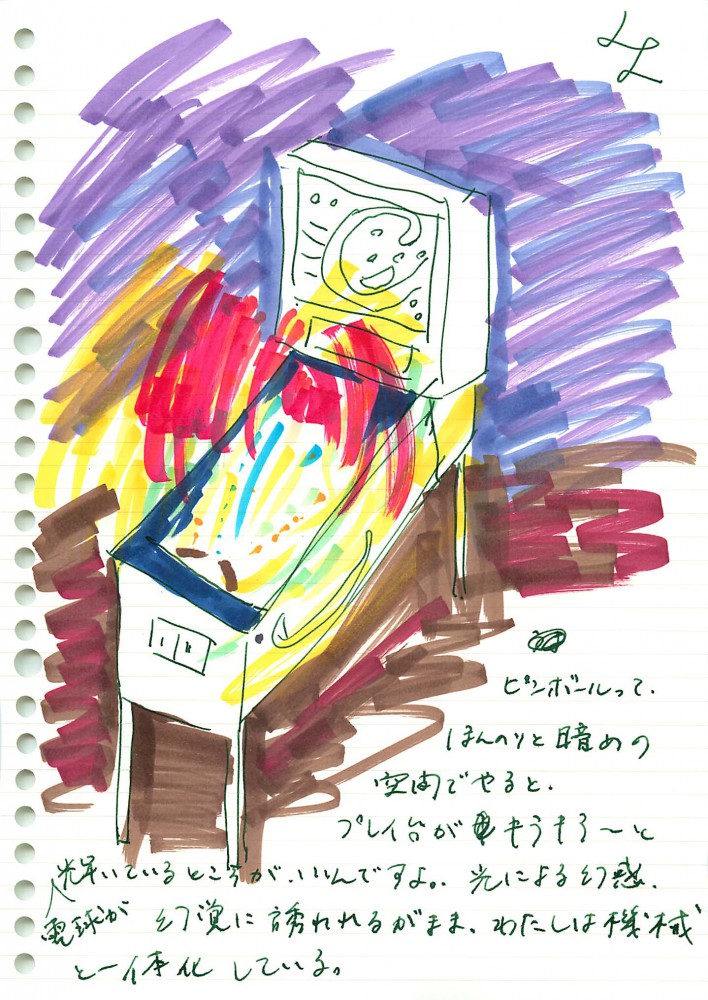 ピンボールって、
ほんのりと暗めの
空間でやると、
プレイ台がもうもう〜と
輝いているところが、いいんですよ。光による幻惑、
電球が 幻覚に誘われるがまま、わたしは機械
と一体化している。